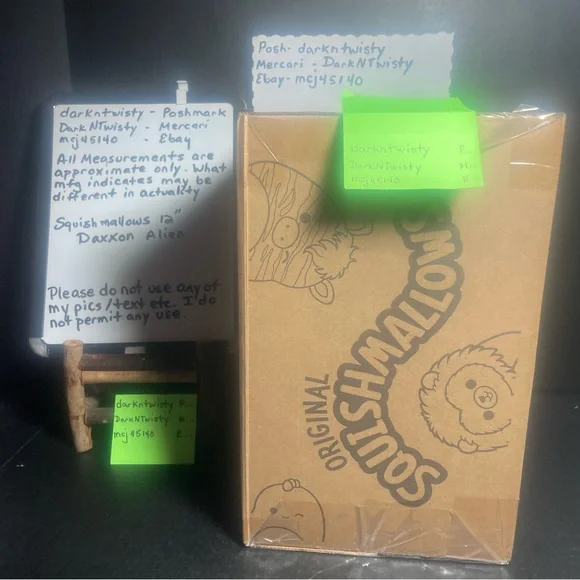 Posh- darkntwisty
Mercari - DarkNTwisty
Ebay- mcj45140
darkntwisty - Poshmark
DarkNTwisty - Mercari
mcj45140 - Ebay
All Measurements are
approximate only. What
mfg indicates may be
different in actuality
Squishmallows 12"
Daxxon Alien
Please do not use any of
my pics/text etc. I do
not permit any use.
darkntwisty P...
DarkNTwisty M...
mcj45140 E...
darkntwisty P...
DarkNTwisty M...
mcj45140 E...
ORIGINAL
SQUISHMALLOW